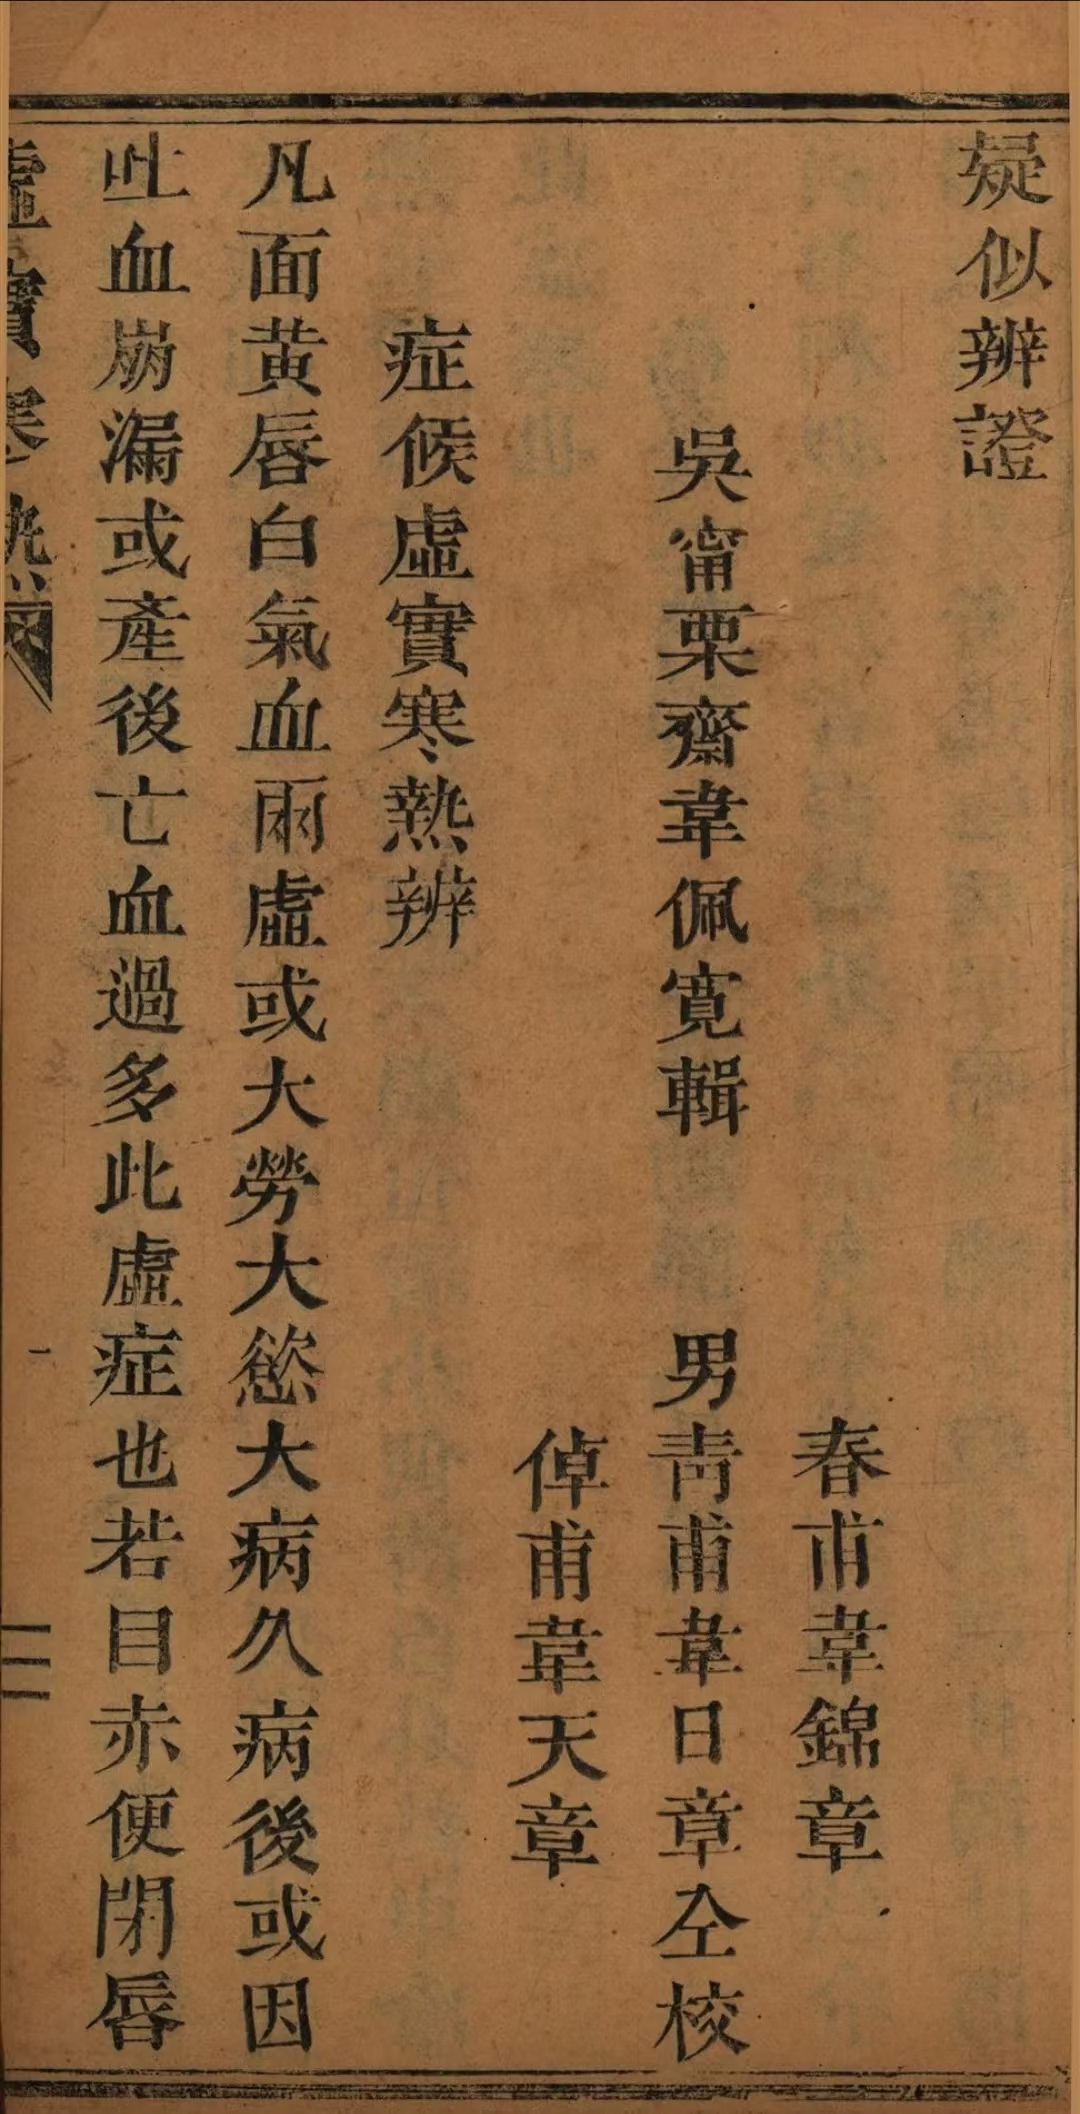 疑似辨證
春甫韋錦章
吳甯栗齋韋佩寬輯　男青甫韋日章仝校
倬甫韋天章
症候虛實寒熱辨
凡面黃唇白氣血兩虛或大勞大慾大病久病後或因
吐血崩漏或產後亡血過多此虛症也若目赤便閉唇
虛實寒熱辨
一